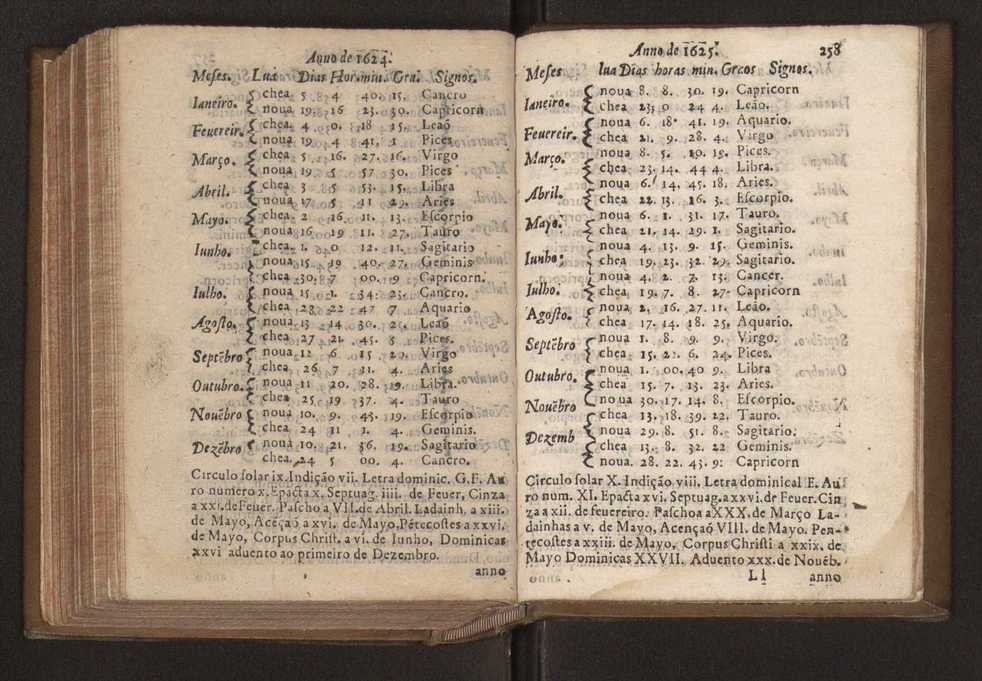 Anno de 1624.
Meses. Lua Dias Hor. min. Gra. Signos.
Ianeiro. chea 5 4 40. 15. Cancro
noua 19. 16 23. 30. Capricorn
Feuereir. chea. 4 0. 18 15. Leaõ
noua 19. 4 41. 1 Pices
Março. chea 5 16. 27. 16. Virgo
noua 19. 5 57 30. Pices
Abril. chea 3 5 53. 15. Libra
noua 17 5 11 29. Aries
Mayo. chea 2 16. 11. 13. Escorpio
noua 16 19 11. 27. Tauro
Iunho. chea. 1. 0 12. 11. Sagitario
noua 15. 19 40. 27. Geminis
chea 30. 7 00. 9 Capricorn.
Iulho. noua 15. 1. 34. 23. Cancro.
chea 28 22 47 7 Aquario
Agosto. noua 13 14 30. 21. Leaõ
chea 27 21. 45. 8 Pices.
Septẽbro noua 12 6 15 20. Virgo
chea 26 7 11. 4. Aries
Outubro. noua 11 20. 28. 19. Libra.
chea 25 19 37. 4. Tauro
Nouẽbro noua 10. 9. 43. 19. Escorpio
chea 24 11 1. 4. Geminis.
Dezẽbro noua 10. 21. 36. 19. Sagitario
chea. 24 5 00. 4. Cancro.
Circulo solar ix. Indição vii. Letra dominic. G.F. Au
ro numero x. Epacta x. Septuag. iiii. de Feuer, Cinza
a xxi. de Feuer. Pascho a VII. de Abril. Ladainh, a xiii.
de Mayo, Acẽçaõ a xvi. de Mayo, Pẽtecostes a xxvi.
de Mayo, Corpus Christ. a vi. de Iunho, Dominicas
xxvi aduento ao primeiro de Dezembro.
anno
Anno de 1625. 258
Meses lua Dias horas min. Graos Signos.
Ianeiro. noua 8. 8. 30. 19. Capricorn
chea 23. 0 24 4. Leão.
Feuereir. noua 6. 18. 41. 19. Aquario.
chea 21. 9. 28. 4. Virgo
Março. noua 8. 5. 19. 19. Pices.
chea 23. 14. 44 4. Libra.
Abril. noua 6. 14. 45. 18. Aries.
chea 22. 13. 16. 3. Escorpio.
Mayo. noua 6. 1. 31. 17. Tauro.
chea 21. 14. 29. 1. Sagitario.
Iunho. noua 4. 13. 9. 15. Geminis.
chea 19. 23. 32. 29. Sagitario.
Iulho. noua 4. 2. 7. 13. Cancer.
chea 19. 7. 8. 27. Capricorn
Agosto. noua 2. 16. 27. 11. Leão.
chea 17. 14. 18. 25. Aquario.
Septẽbro noua 1. 8. 9. 9. Virgo.
chea 15. 22. 6. 24. Pices.
Outubro. noua 1. 00. 40 9. Libra
chea 15. 7. 13. 23. Aries.
Nouẽbro noua 30. 17. 14. 8. Escorpio.
chea 13. 18. 39. 22. Tauro.
Dezemb noua 29. 8. 51. 8. Sagitario.
chea 13. 8. 32. 22 Geminis.
noua. 28. 22. 43. 9. Capricorn
Circulo solar X. Indição viii. Letra dominical E. Au
ro num. XI. Epacta xvi. Septuag. a xxvi. de Feuer. Cin
za a xii. de feuereiro. Paschoa a XXX. de Março La-
dainhas a v. de Mayo, Acençaõ VIII. de Mayo. Pen-
tecostes a xxiii. de Mayo, Corpus Christi a xxix. de
Mayo Dominicas XXVII. Aduento xxx. de Nouẽb.
Ll anno